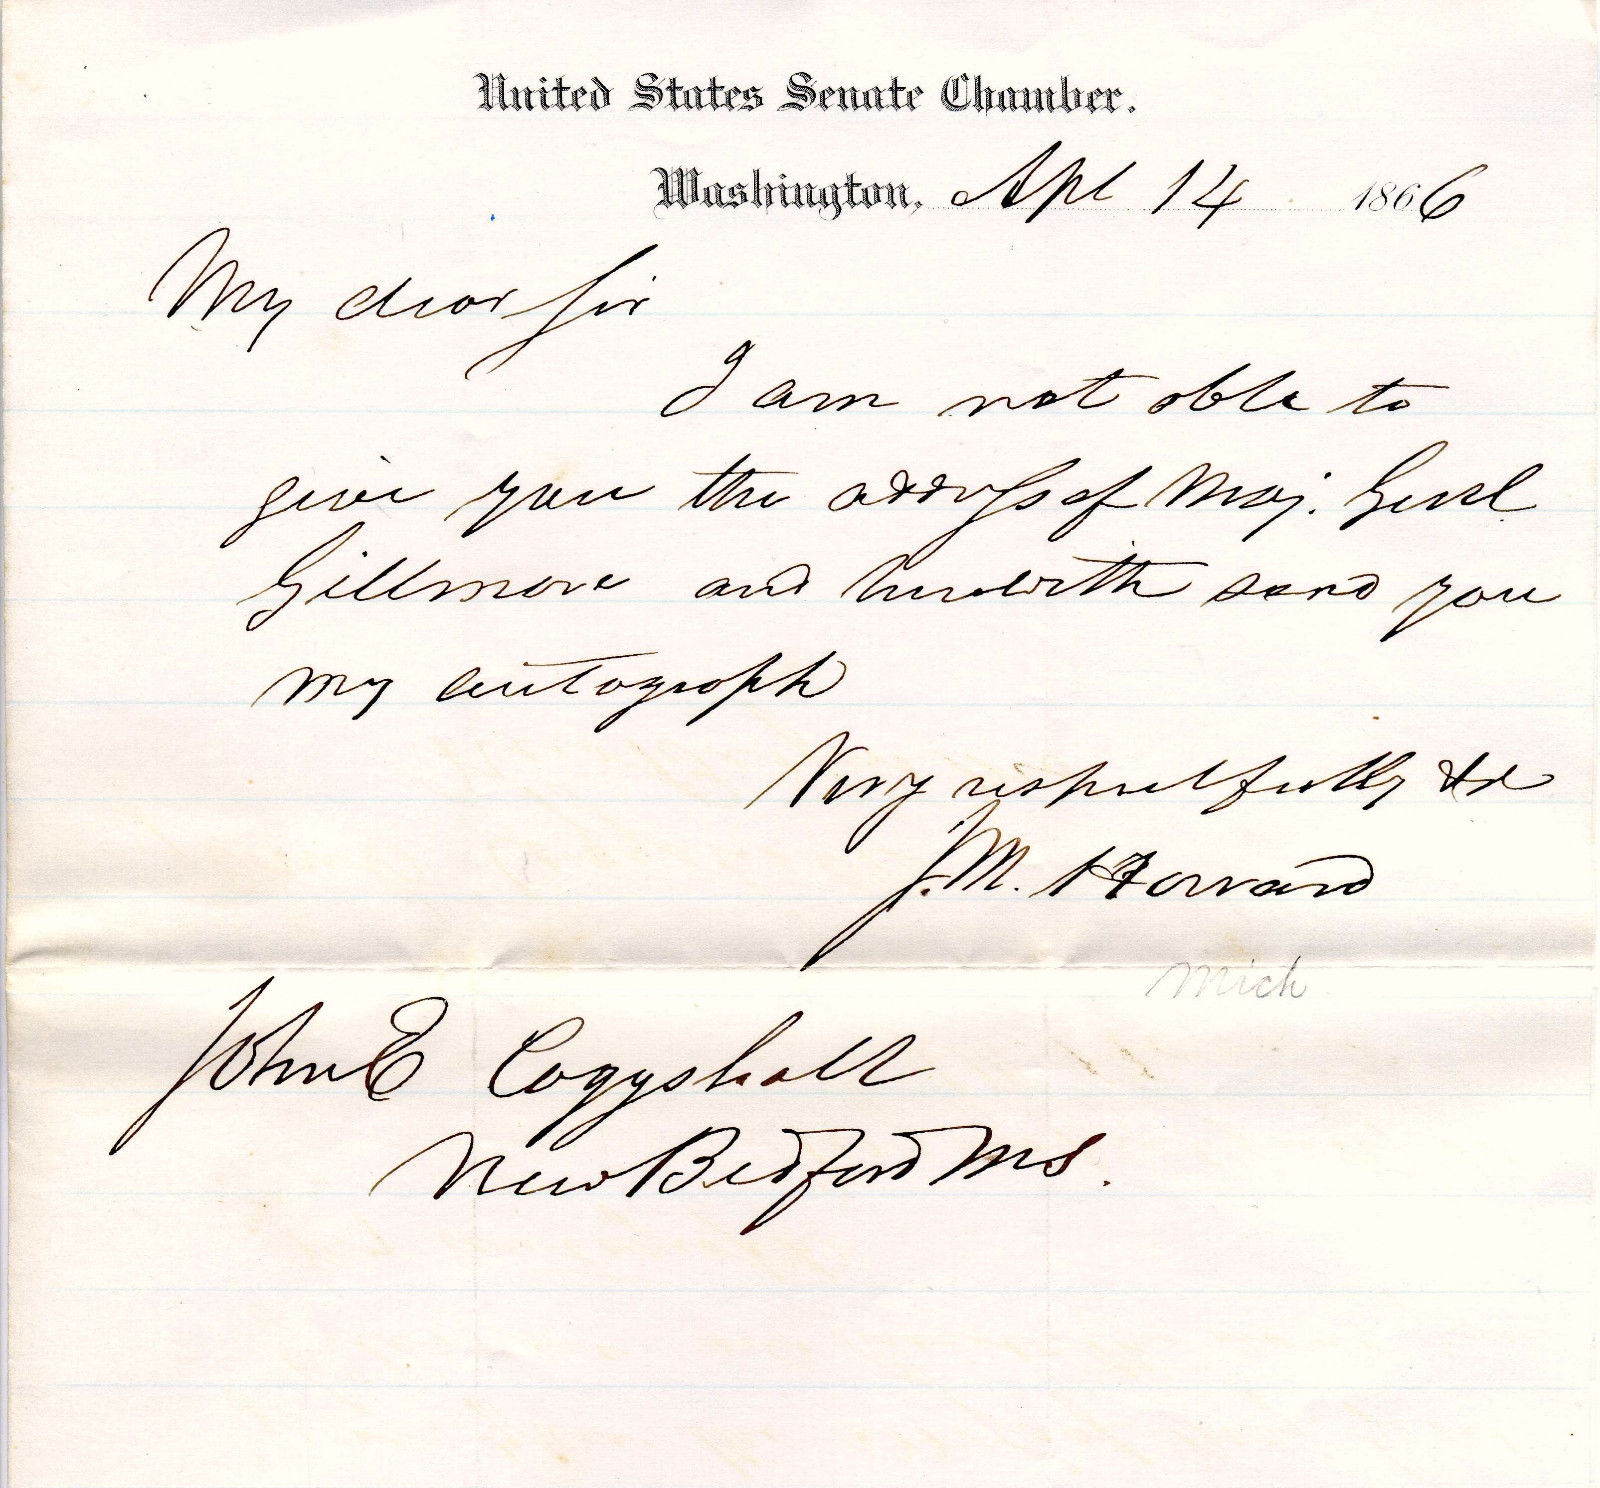 United States Senate Chamber.
Washington, Apl 14 1866
My dear Sir
I am not able to
give you the address of Maj. Genl
Gillmore and herewith send you
my autograph
Very respectfully &c
J. M. Howard
Mich
John E Coggshall
New Bedford Ms.